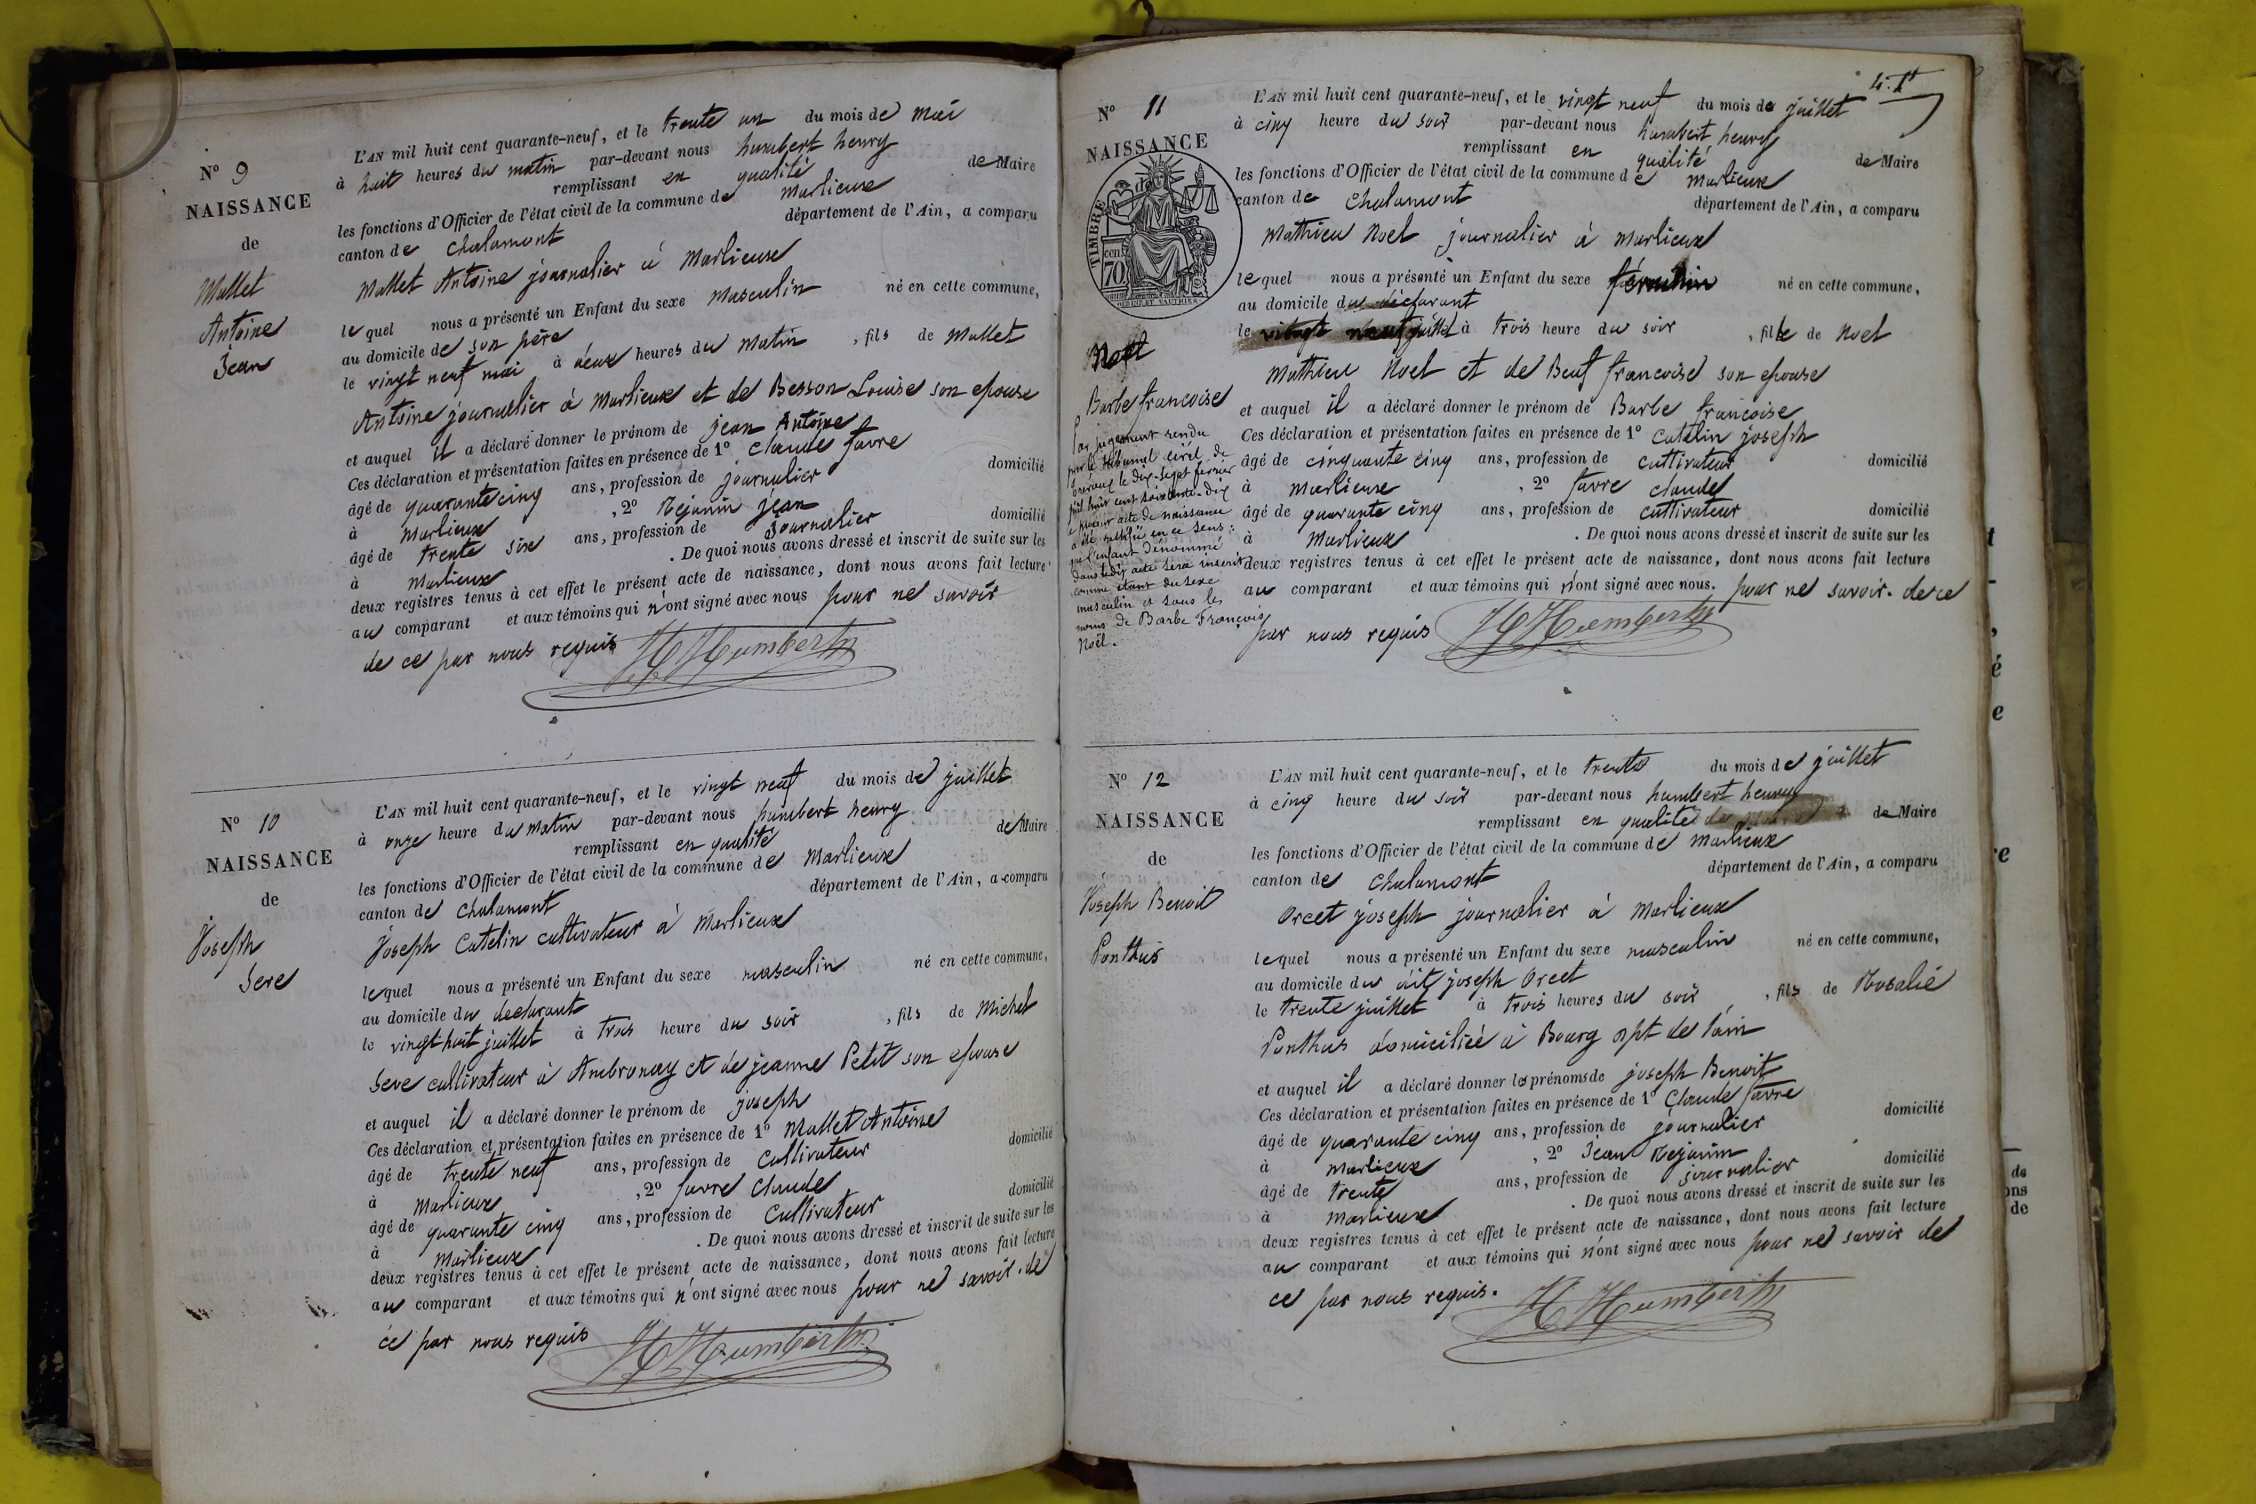 N° 9
NAISSANCE
de
Mallet
Antoine
Jean
L'AN mil huit cent quarante-neuf, et le trente un du mois de mai
à huit heures du matin par-devant nous humbert henry
remplissant en qualité de Maire
les fonctions d'Officier de l'état civil de la commune de Marlieux
canton de Chalamont département de l'Ain, a comparu
Mallet Antoine journalier à Marlieux
lequel nous a présenté un Enfant du sexe masculin né en cette commune,
au domicile de son père
le vingt neuf mai à deux heures du matin, fils de Mallet
Antoine journalier à Marlieux et de Besson Louise son epouse
et auquel il a déclaré donner le prénom de jean Antoine
Ces déclaration et présentation faites en présence de 1° Claude favre
âgé de quarante cinq ans, profession de journalier domicilié
à Marlieux, 2° Rejanin jean
âgé de trente six ans, profession de Journalier domicilié
à Marlieux. De quoi nous avons dressé et inscrit de suite sur les
deux registres tenus à cet effet le présent acte de naissance, dont nous avons fait lecture
au comparant et aux témoins qui n'ont signé avec nous pour ne savoir
de ce par nous requis HHumbert
N° 10
NAISSANCE
de
Joseph
Seve
L'AN mil huit cent quarante-neuf, et le vingt neuf du mois de juillet
à onze heure du matin par-devant nous humbert henry
remplissant en qualité de Maire
les fonctions d'Officier de l'état civil de la commune de Marlieux
canton de Chalamont département de l'Ain, a comparu
Joseph Catelin cultivateur à Marlieux
lequel nous a présenté un Enfant du sexe masculin né en cette commune,
au domicile du declarant
le vingt huit juillet à trois heure du soir, fils de Michel
Seve cultivateur à Ambronay et de jeanne Petit son epouse
et auquel il a déclaré donner le prénom de joseph
Ces déclaration et présentation faites en présence de 1° Mallet Antoine
âgé de trente neuf ans, profession de Cultivateur domicilié
à Marlieux, 2° favre Claude
âgé de quarante cinq ans, profession de Cultivateur domicilié
à Marlieux. De quoi nous avons dressé et inscrit de suite sur les
deux registres tenus à cet effet le présent acte de naissance, dont nous avons fait lecture
au comparant et aux témoins qui n'ont signé avec nous pour ne savoir. de
ce par nous requis HHumbert
N° 11
NAISSANCE
de
TIMBRE
cen 70
Noel
Barbe francoise
Par jugement rendu
par le tribunal civil de
Trévoux le dix-sept février
mil huit cent soixante-dix
le présent acte de naissance
a été rectifié en ce sens:
que l'enfant dénommé
dans ledit acte sera inscrit
comme étant du sexe
masculin et sous les
noms de Barbe François
Noël.
L'AN mil huit cent quarante-neuf, et le vingt neuf du mois de juillet
à cinq heure du soir par-devant nous humbert henry
remplissant en qualité de Maire
les fonctions d'Officier de l'état civil de la commune de Marlieux
canton de Chalamont département de l'Ain, a comparu
Mathieu Noel journalier à Marlieux
lequel nous a présenté un Enfant du sexe féminin né en cette commune,
au domicile du déclarant
le vingt neuf juillet à trois heure du soir, fille de Noel
Mathieu Noel et de Beuf francoise son epouse
et auquel il a déclaré donner le prénom de Barbe francoise
Ces déclaration et présentation faites en présence de 1° Catelin joseph
âgé de cinquante cinq ans, profession de cultivateur domicilié
à Marlieux, 2° favre claude
âgé de quarante cinq ans, profession de cultivateur domicilié
à Marlieux. De quoi nous avons dressé et inscrit de suite sur les
deux registres tenus à cet effet le présent acte de naissance, dont nous avons fait lecture
au comparant et aux témoins qui n'ont signé avec nous. pour ne savoir. de ce
par nous requis HHumbert
N° 12
NAISSANCE
de
Joseph Benoit
Ponthus
L'AN mil huit cent quarante-neuf, et le trente du mois de juillet
à cinq heure du soir par-devant nous humbert henry
remplissant en qualité de Maire
les fonctions d'Officier de l'état civil de la commune de Marlieux
canton de Chalamont département de l'Ain, a comparu
Orcet joseph journalier à Marlieux
lequel nous a présenté un Enfant du sexe masculin né en cette commune,
au domicile du dit joseph Orcet
le trente juillet à trois heures du soir, fils de Rosalie
Ponthus domiciliée à Bourg dpt de l'ain
et auquel il a déclaré donner les prénoms de joseph Benoit
Ces déclaration et présentation faites en présence de 1° Claude favre
âgé de quarante cinq ans, profession de journalier domicilié
à Marlieux, 2° Jean Rejanin
âgé de trente ans, profession de journalier domicilié
à Marlieux. De quoi nous avons dressé et inscrit de suite sur les
deux registres tenus à cet effet le présent acte de naissance, dont nous avons fait lecture
au comparant et aux témoins qui n'ont signé avec nous pour ne savoir de
ce par nous requis. HHumbert